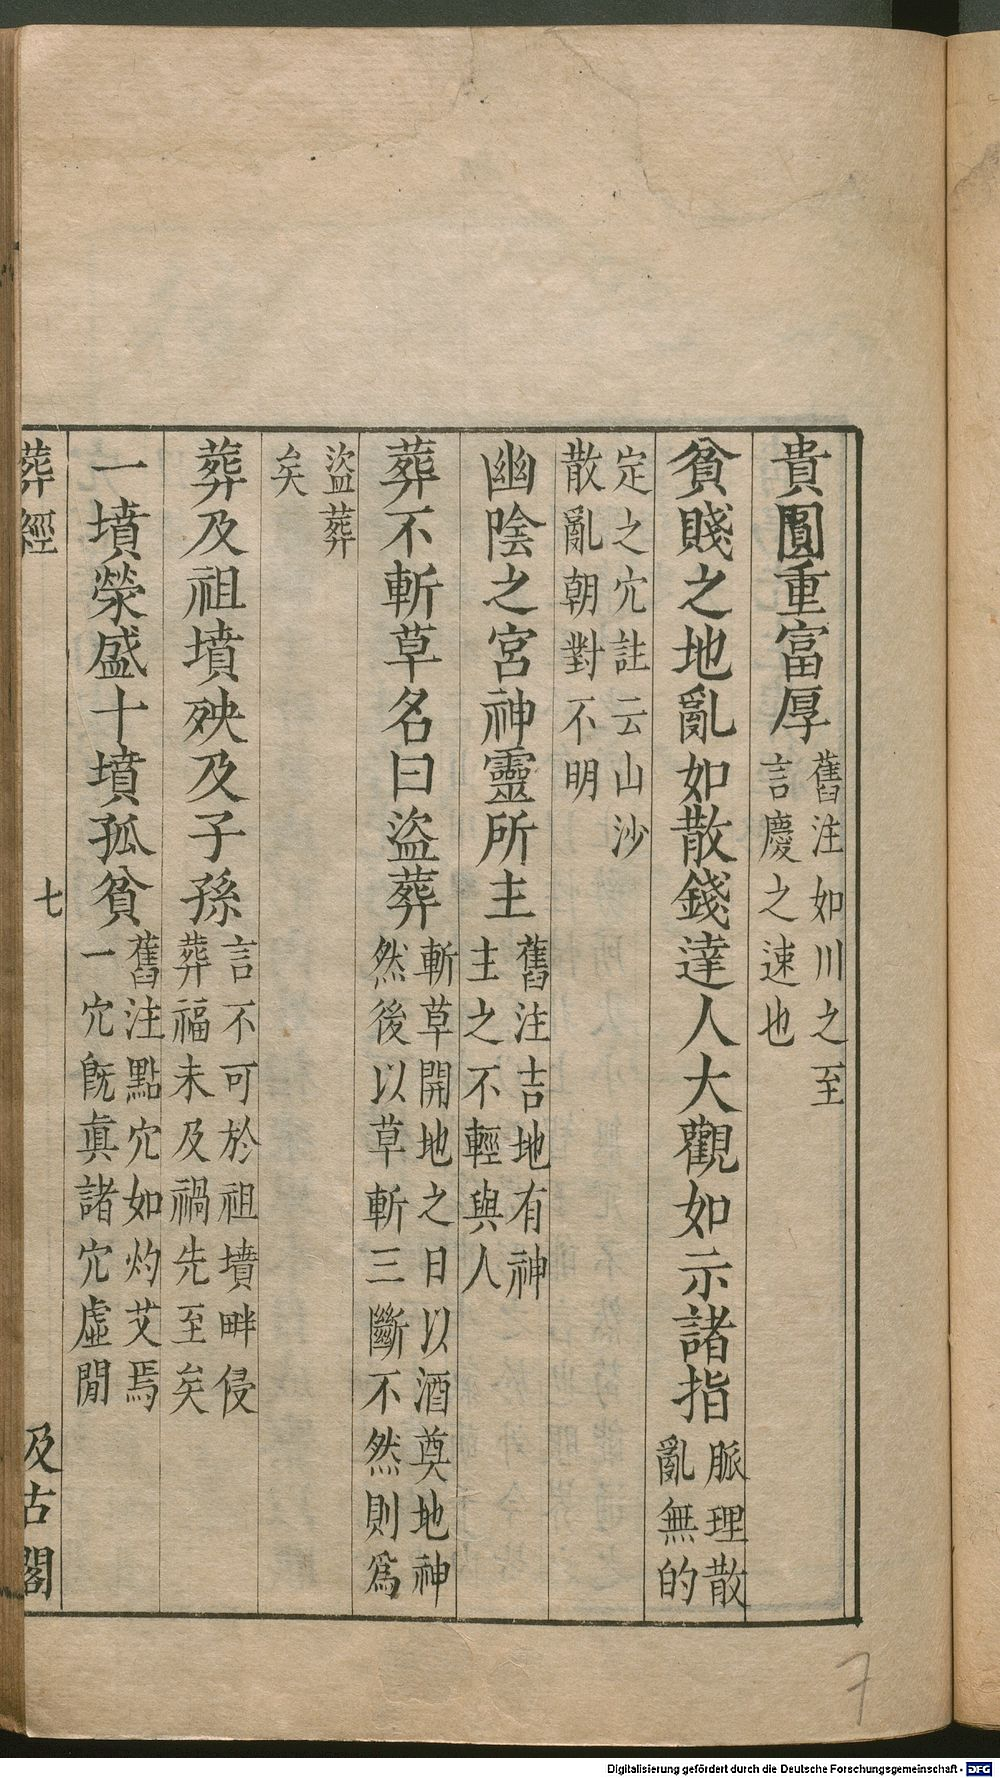 貴圓重富厚舊注如川之至
言慶之速也
貧賤之地亂如散錢達人大觀如示諸指脈理散
亂無的
定之穴註云山沙
散亂朝對不明
幽陰之宮神靈所主舊注吉地有神
主之不輕與人
葬不斬草名曰盜葬斬草開地之日以酒奠地神
然後以草斬三斷不然則爲
盜葬
矣
葬及祖墳殃及子孫言不可於祖墳畔侵
葬福未及禍先至矣
一墳榮盛十墳孤貧舊注點穴如灼艾焉
一穴旣眞諸穴虛閒
葬經 七 汲古閣
7
Digitalisierung gefördert durch die Deutsche Forschungsgemeinschaft - DFG